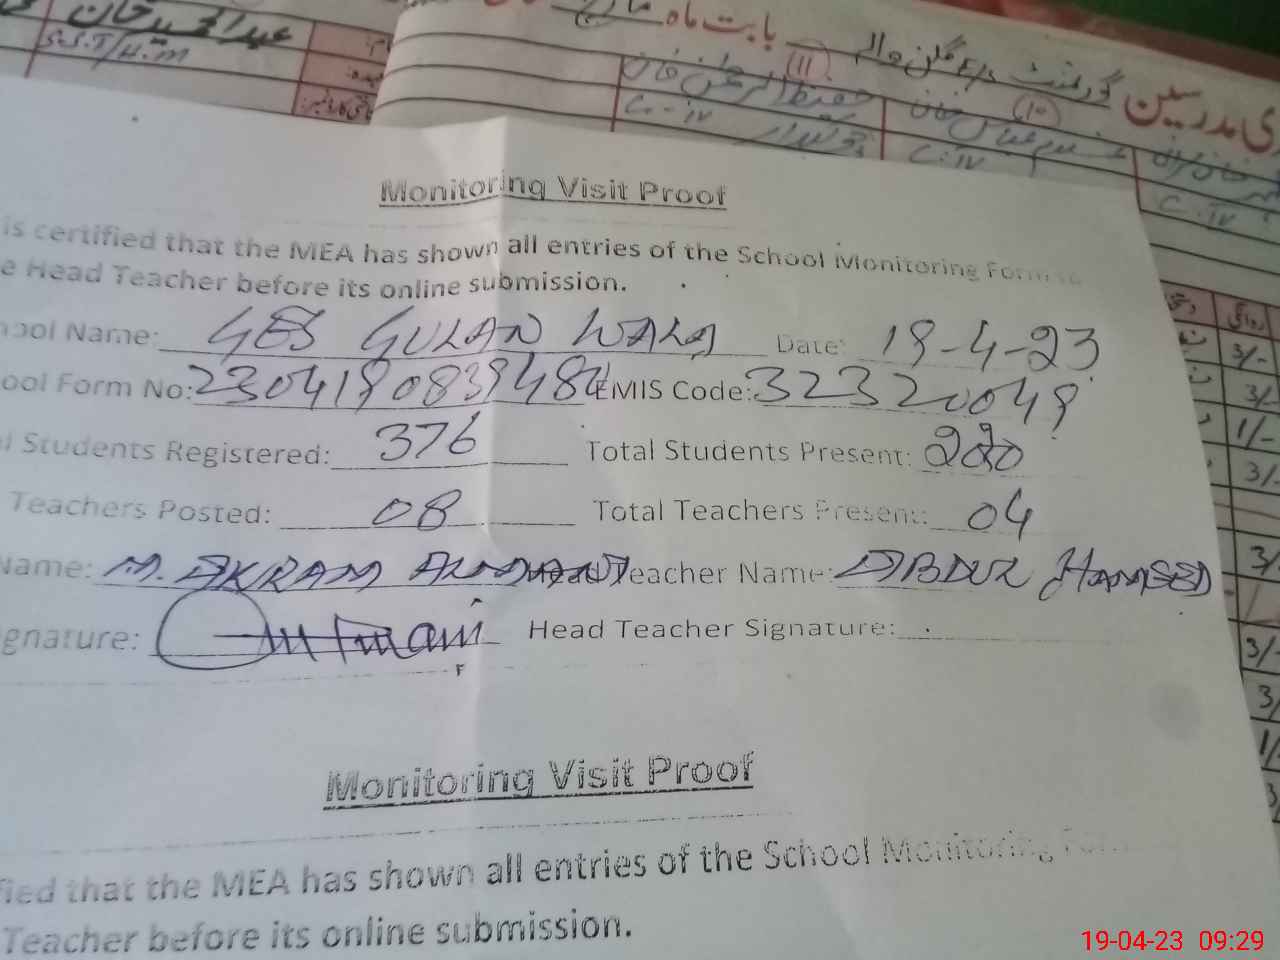 عبدالحمید خان
S.S.T/H.M
بابت ماہ
گورنمنٹ
والہ
ی مدرسین
(11)
(10)
خان
C-IV
C.IV
C.IV
Monitoring Visit Proof
is certified that the MEA has shown all entries of the School Monitoring Form to
e Head Teacher before its online submission.
ool Name: GES GULAN WALA Date: 19-4-23
ool Form No: 2304190839484 EMIS Code: 32320049
l Students Registered: 376 Total Students Present: 220
Teachers Posted: 08 Total Teachers Present: 04
Name: M. AKRAM Teacher Name: ABDUL HAMEED
gnature: Head Teacher Signature:
Monitoring Visit Proof
fied that the MEA has shown all entries of the School Monitoring Form
Teacher before its online submission.
3/-
3/-
1/-
3/-
19-04-23 09:29